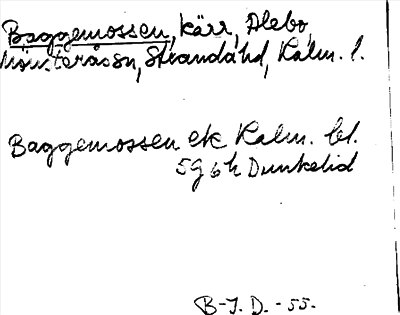 Baggemossen, kärr, Alebo,
Mönsteråssn, Strandahd, Kalm. l.
Baggemossen ek Kalm. bl.
5g6h Dunkelid
B-J. D. -55-